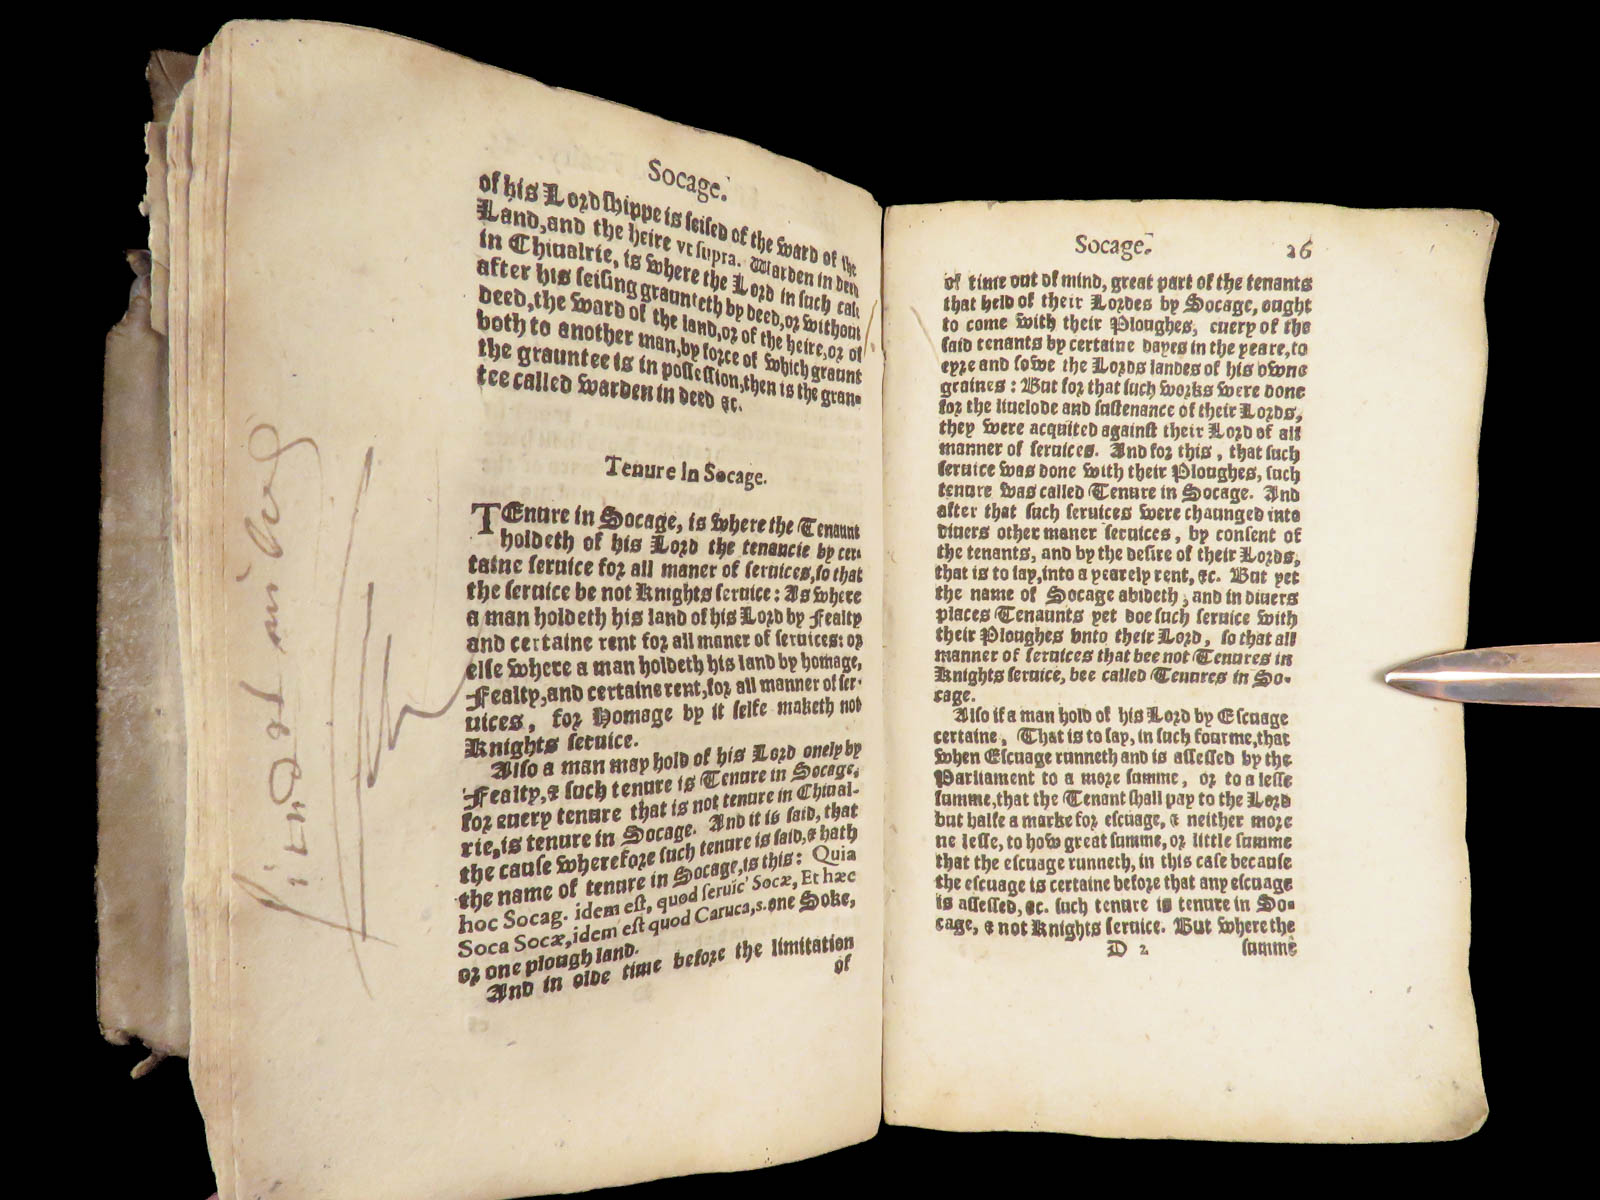 Socage.
of his Lordshippe is seised of the ward of the
Land, and the heire vt supra. Warden in deed
in Chiualrie, is where the Lord in such case
after his seising graunteth by deed, or without
deed, the ward of the land, or of the heire, or of
both to another man, by force of which graunt
the grauntee is in possession, then is the gran-
tee called warden in deed &c.
Tenure in Socage.
TEnure in Socage, is where the Tenaunt
holdeth of his Lord the tenancie by cer-
taine seruice for all maner of seruices, so that
the seruice be not Knights seruice: As where
a man holdeth his land of his Lord by Fealty
and certaine rent for all maner of seruices: or
else where a man holdeth his land by homage,
Fealty, and certaine rent, for all manner of ser-
uices, for Homage by it selfe maketh not
Knights seruice.
Also a man may hold of his Lord onely by
Fealty, & such tenure is Tenure in Socage,
for euery tenure that is not tenure in Chiual-
rie, is tenure in Socage. And it is said, that
the cause wherefore such tenure is said, & hath
the name of tenure in Socage, is this: Quia
hoc Socag. idem est, quod seruic' Socæ, Et hæc
Soca Socæ, idem est quod Caruca, s. one Soke,
or one plough land.
And in olde time before the limitation
of
Socage. 26
of time out of mind, great part of the tenants
that held of their Lordes by Socage, ought
to come with their Ploughes, euery of the
said tenants by certaine dayes in the yeare, to
eyre and sowe the Lords landes of his owne
graines: But for that such works were done
for the liuelode and sustenance of their Lords,
they were acquited against their Lord of all
manner of seruices. And for this, that such
seruice was done with their Ploughes, such
tenure was called Tenure in Socage. And
after that such seruices were chaunged into
diuers other maner seruices, by consent of
the tenants, and by the desire of their Lords,
that is to say, into a yearely rent, &c. But yet
the name of Socage abideth, and in diuers
places Tenaunts yet doe such seruice with
their Ploughes vnto their Lord, so that all
manner of seruices that bee not Tenures in
Knights seruice, bee called Tenures in So-
cage.
Also if a man hold of his Lord by Escuage
certaine, That is to say, in such fourme, that
when Escuage runneth and is assessed by the
Parliament to a more summe, or to a lesse
summe, that the Tenant shall pay to the Lord
but halfe a marke for escuage, & neither more
ne lesse, to how great summe, or little summe
that the escuage runneth, in this case because
the escuage is certaine before that any escuage
is assessed, &c. such tenure is tenure in So-
cage, & not Knights seruice. But where the
D 2 summe